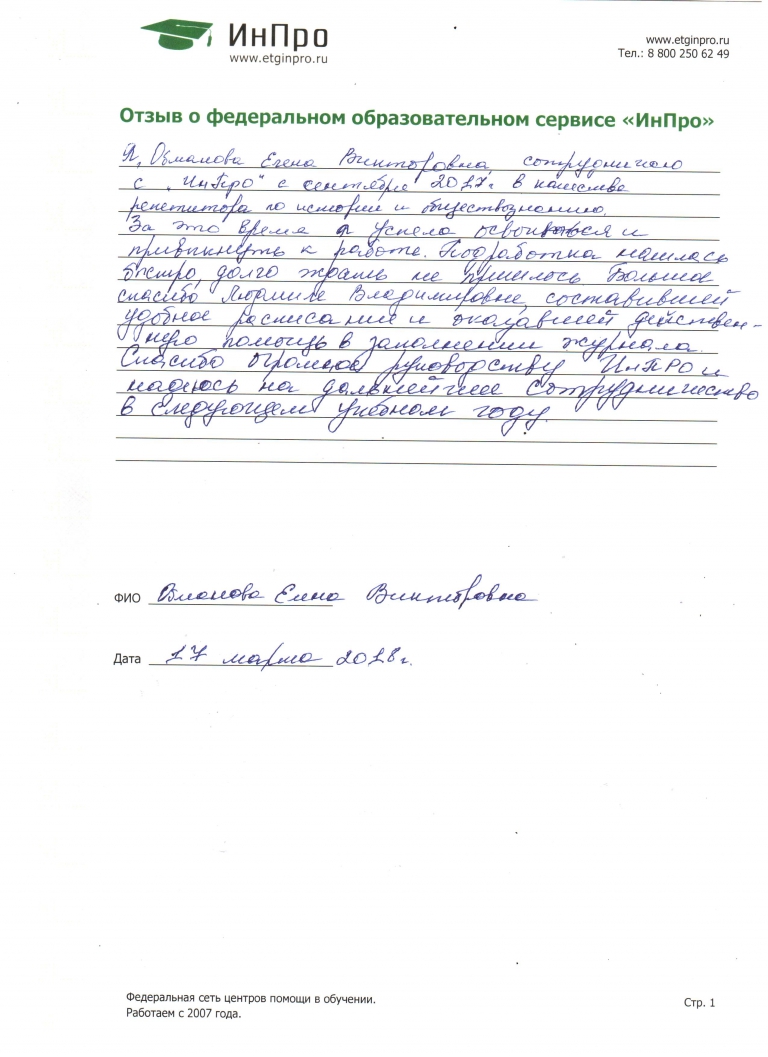 ИнПро
www.etginpro.ru
www.etginpro.ru
Тел.: 8 800 250 62 49
Отзыв о федеральном образовательном сервисе «ИнПро»
Я, Обманова Елена Викторовна, сотрудничаю
с „ИнПро“ с сентября 2017г. в качестве
репетитора по истории и обществознанию.
За это время я успела освоиться и
привыкнуть к работе. Подработка нашлась
быстро, долго ждать не пришлось. Большое
спасибо Людмиле Владимировне, составившей
удобное расписание и оказавшей действен-
ную помощь в заполнении журнала.
Спасибо огромное руководству ИнПРО и
надеюсь на дальнейшее сотрудничество
в следующем учебном году.
ФИО Обманова Елена Викторовна
Дата 17 марта 2018г.
Федеральная сеть центров помощи в обучении.
Работаем с 2007 года.
Стр. 1